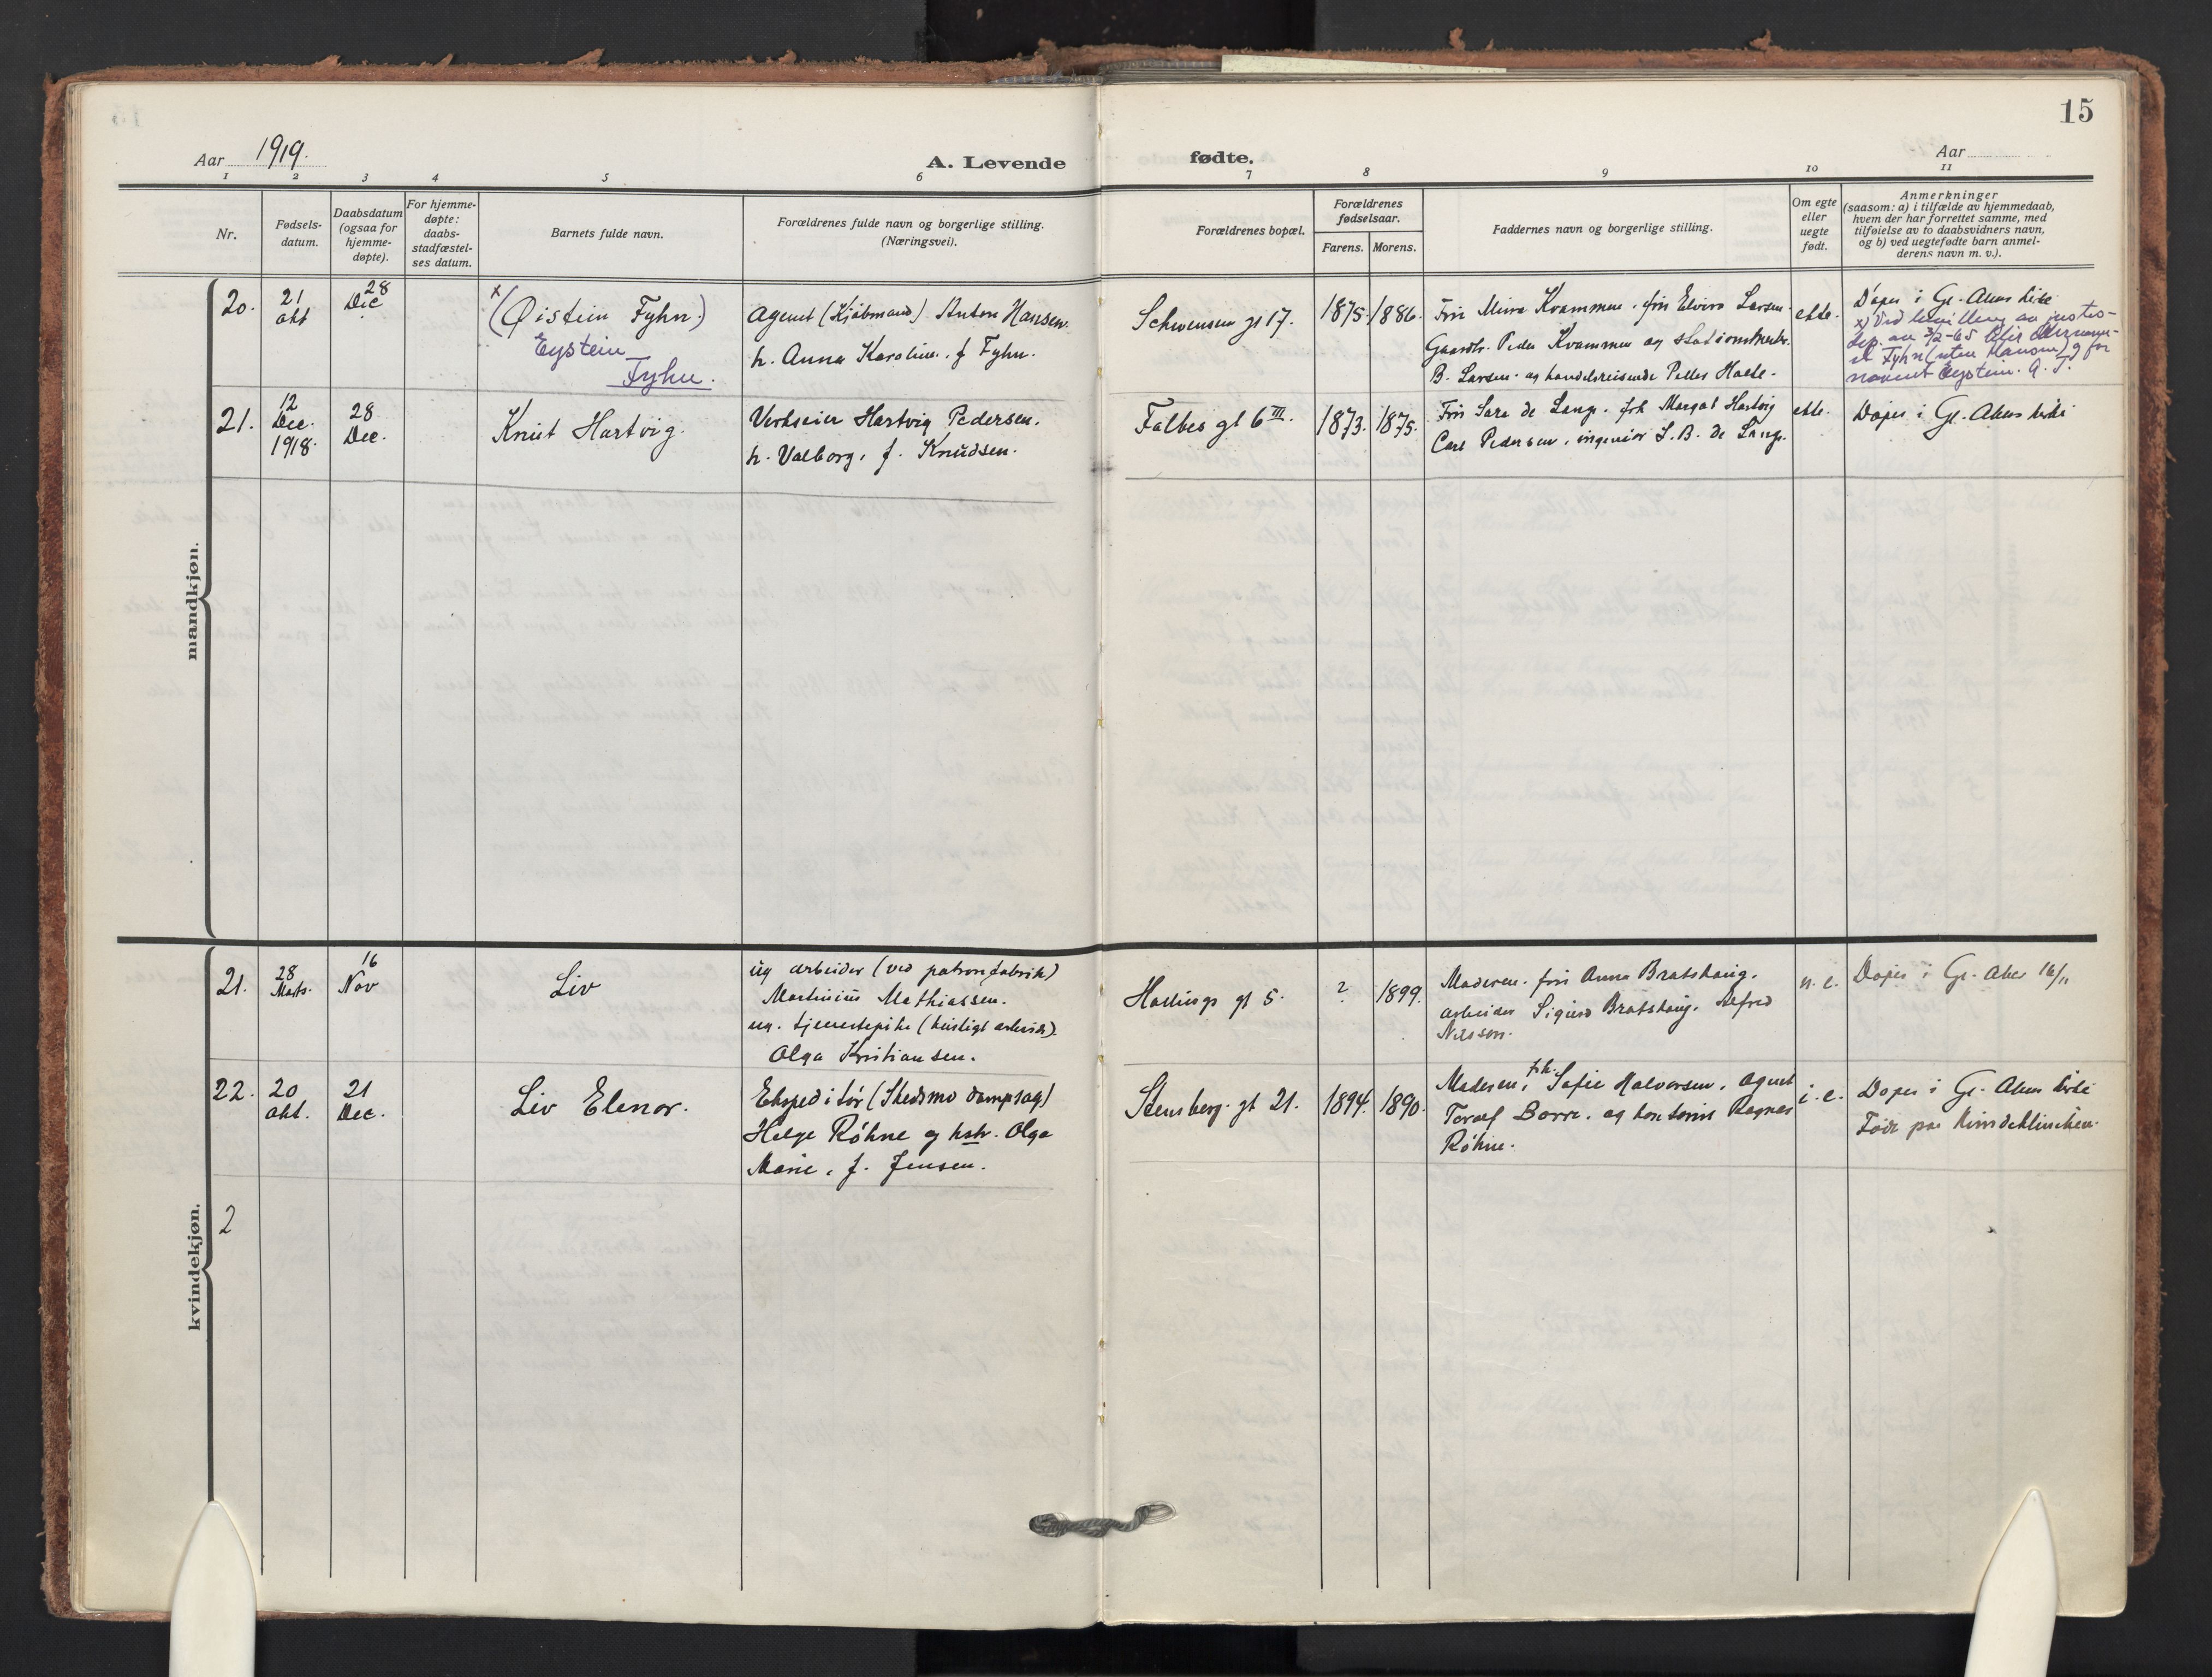 15
Aar 1919.
A. Levende
fødte.
Aar
1 2 3 4 5 6
7 8 9 10 11
Nr.
Fødsels-
datum.
Daabsdatum
(ogsaa for
hjemme-
døpte).
For hjemme-
døpte:
daabs-
stadfæstel-
ses datum.
Barnets fulde navn.
Forældrenes fulde navn og borgerlige stilling.
(Næringsvei).
Forældrenes bopæl.
Forældrenes
fødselsaar.
Farens. Morens.
Faddernes navn og borgerlige stilling.
Om egte
eller
uegte
født.
Anmerkninger
(saasom: a) i tilfælde av hjemmedaab,
hvem der har forrettet samme, med
tilføielse av to daabsvidners navn,
og b) ved uegtefødte barn anmel-
derens navn m. v.).
mandkjøn.
20.
21
okt
28
Dec
x
(Øistein Fyhn.)
Eystein
Fyhn.
Agent (Kjøbmand) Anton Hansen
h. Anna Karoline. f Fyhn.
Schwensen gt 17.
1875. 1886.
Fru Minva Kvammen. fru Elvira Larsen.
Gaardbr. Peder Kvammen og
B. Larsen. og handelsreisende Holte.
ekte.
Døpt i Gl. Akers kirke
x) Ved bevilling av justis-
dep. av 3/2-65
Fyhn (uten Hansen) og for
navnet Eystein. G. T.
21.
12
Dec.
1918.
28
Dec.
Knut Hartvig.
Verkseier Hartvig Pedersen.
h. Valborg, f. Knudsen.
Falbes gt 6 III.
1873. 1875.
Fru Sara de Lange. frk Margot Hartvig
Carl Pedersen, ingeniør L. B. de Lange.
ekte.
Døpt i Gl. Akers kirke
kvindekjøn.
21.
28
Marts.
16
Nov
Liv
ug arbeider (ved patronfabrik)
Martinius Mathiassen.
ug. tjenestepike (husligt arbeide).
Olga Kristiansen.
Hallings gt 5.
? 1899.
Moderen. fru Anna Bratshaug.
arbeider Sigurd Bratshaug. Alfred
Nilsson.
u. e.
Døpt i Gl. Aker 16/11
22.
20
okt.
21
Dec.
Liv Elenor.
Ekspeditør (Skedsmo dampsag)
Helge Røhne og hstr. Olga
Marie. f. Jensen.
Stensberg. gt 21.
1894. 1890.
Moderen, frk. Sofie Halvorsen. agent
Toralf Borre. og kontorist Ragnar
Røhne.
i. e.
Døpt i Gl. Akers kirke
Født paa Kvindeklinikken.
2